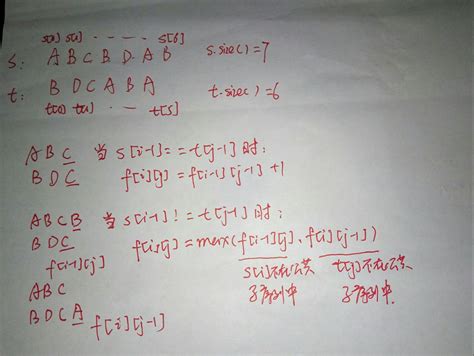 s[0] s[1] ---- s[6]
s: A B C B D A B s.size()=7
t: B D C A B A t.size()=6
t[0] t[1] --- t[5]
A B C 当 s[i-1]==t[j-1]时:
B D C f[i][j]=f[i-1][j-1]+1
A B C B 当 s[i-1]!=t[j-1]时:
B D C f[i][j]=max(f[i-1][j], f[i][j-1])
f[i-1][j] s[i]不在公共 t[j]不在公共
A B C 子序列中 子序列中.
B D C A f[i][j-1]